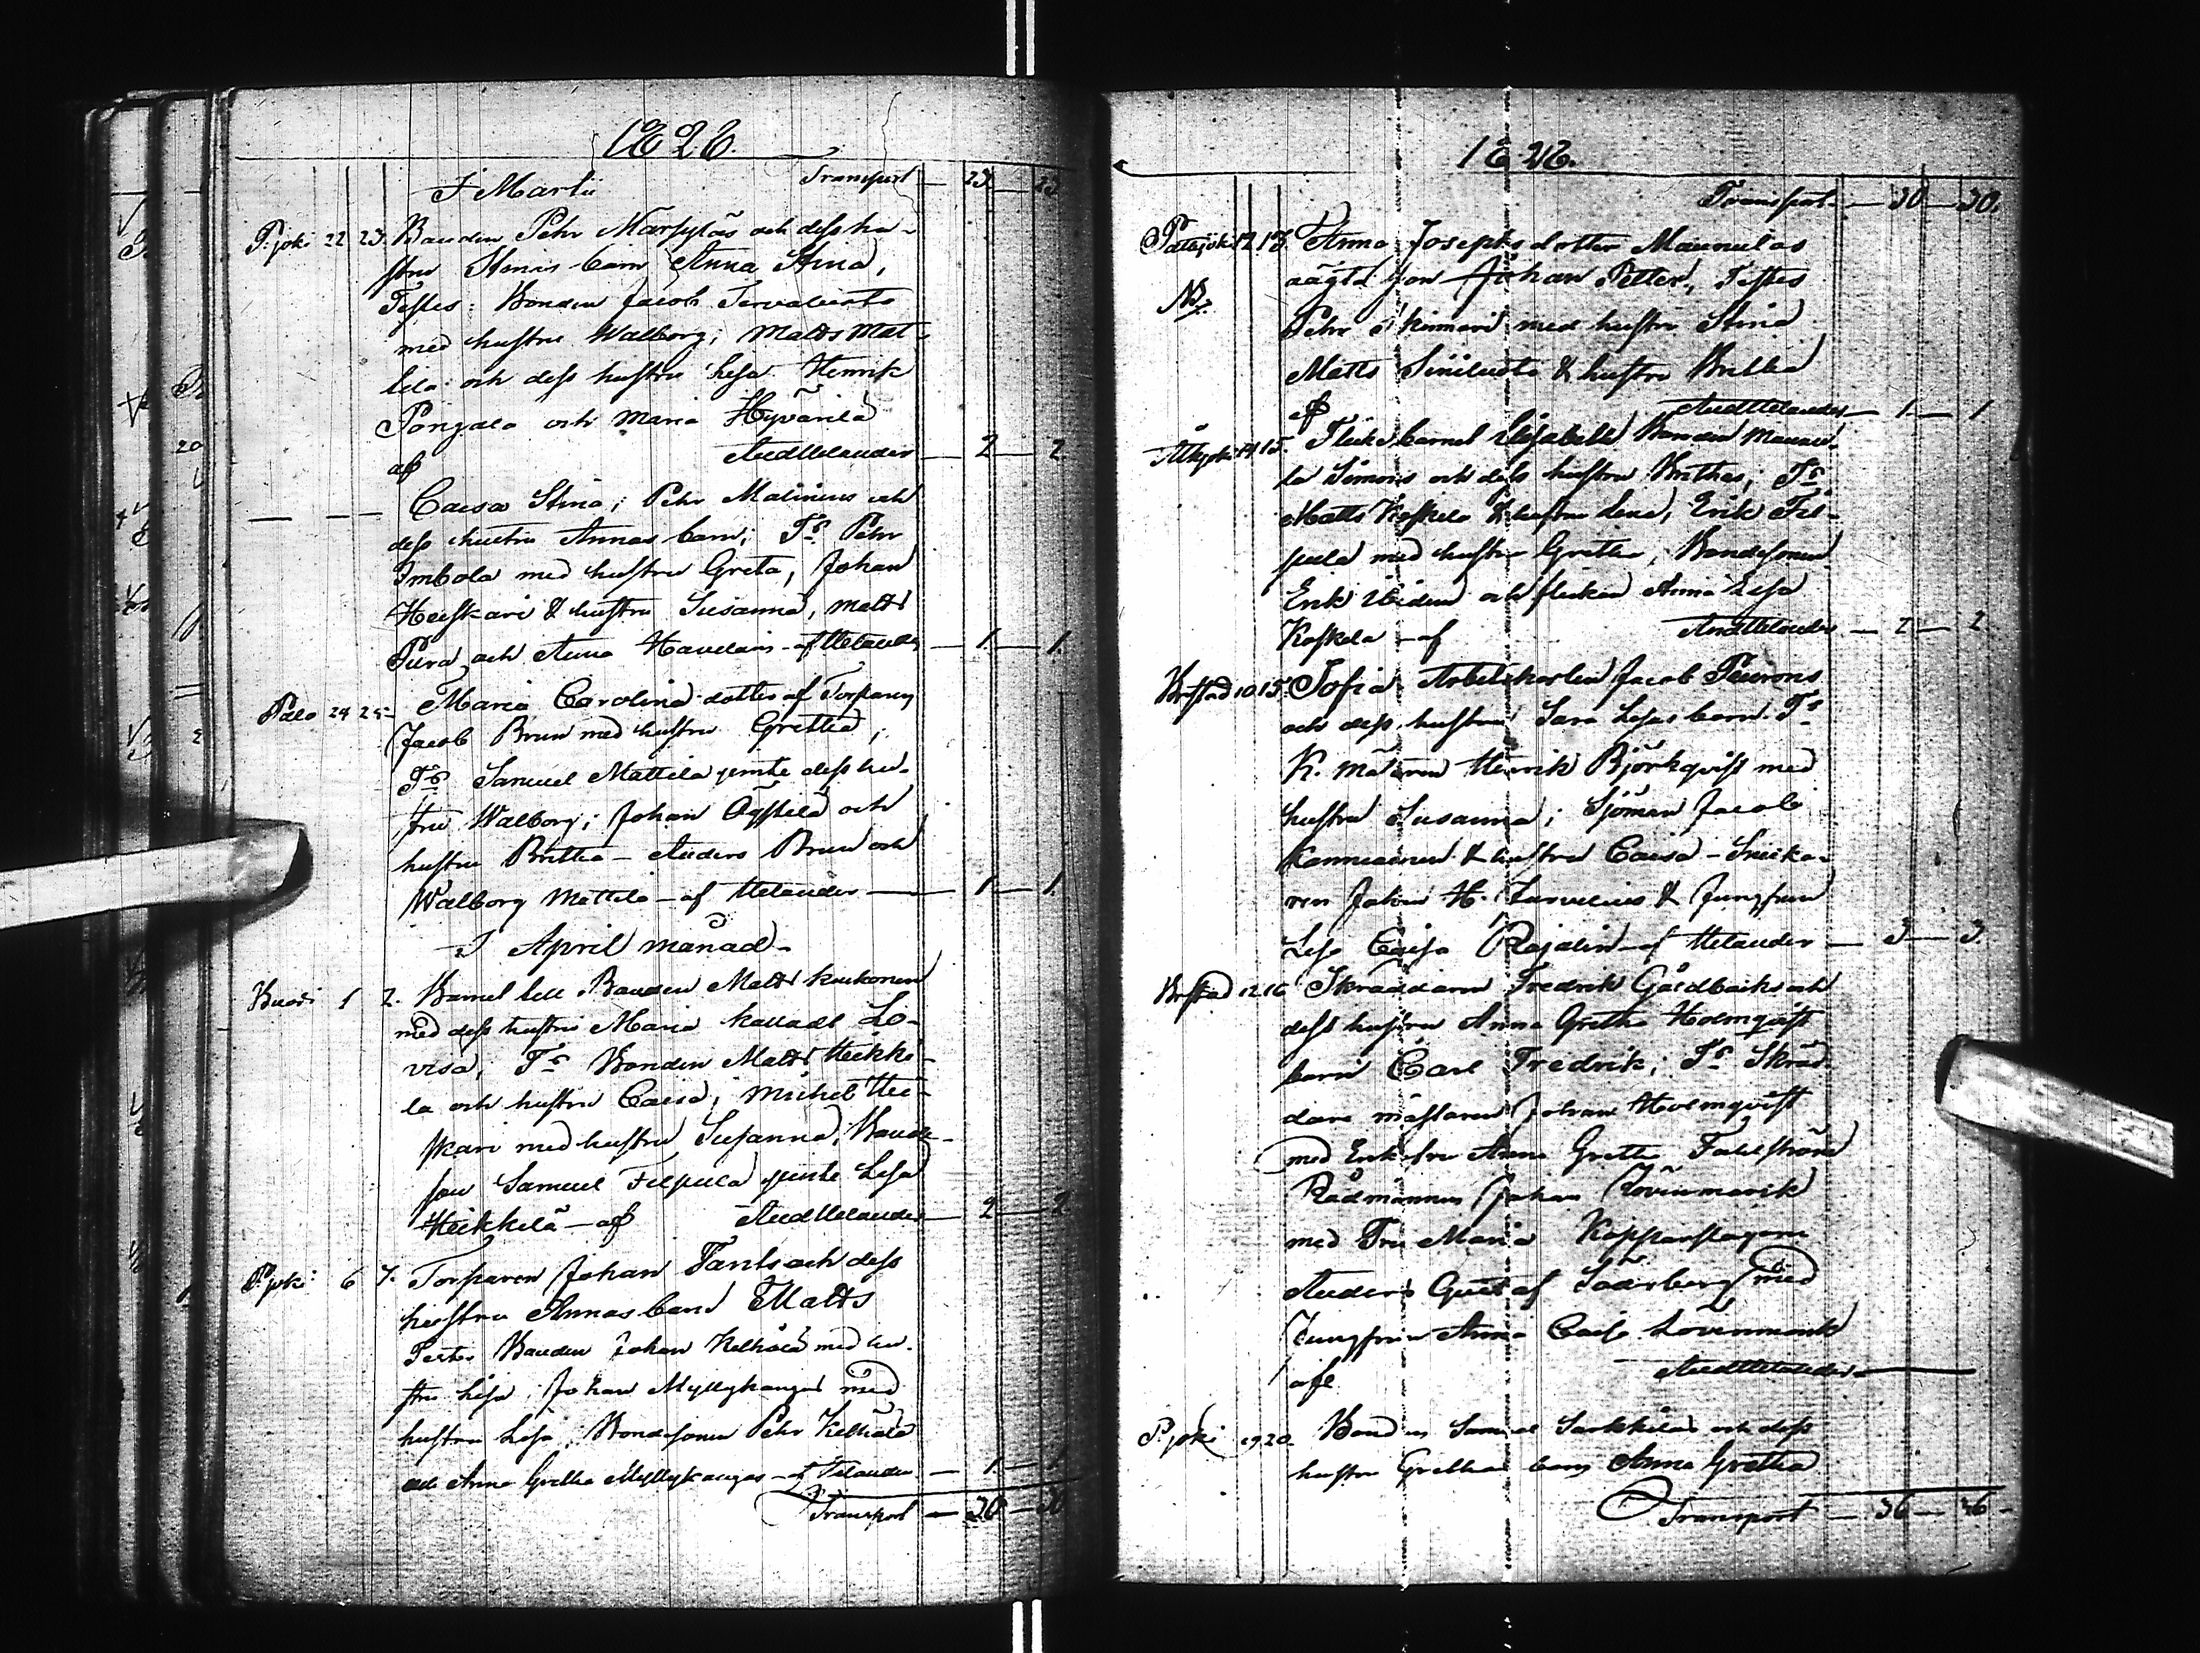 1826.
I Martii Transport — 23 — 23
P.joki 22 23. Bonden Pehr Marsyläs och dess hu-
stru Stinas barn Anna Stina,
Testes: Bonden Jacob
med hustru Walborg; Matts Mat-
tila och dess hustru Lisa Henrik
Pongala och Maria Hyvärilä
af And Helander — 2 — 2
Caisa Stina; Pehr Malinens och
dess hustru Annas barn; T:s Pehr
Imbola med hustru Greta, Johan
Heiskari & hustru Susanna, Matts
Pura och Anna af Helander — 1. — 1.
Palo 24 25 Maria Carolina dotter af Torparen
Jacob Brun med hustru Gretha;
T:s Samuel Mattila jemte dess hu-
stru Walborg; Johan och
hustru Britha — Anders Brun och
Walborg Mattila — af Helander — 1 — 1.
I April månad
1 2. Barnet till Bonden Matts
med dess hustru Maria kalladt Lo-
visa, T:s Bonden Matts Heikki-
la och hustru Caisa; Michel Hei-
skari med hustru Susanna, Bonde-
son Samuel Filpula jemte Lisa
Heikkilä — af And Helander — 2 — 2
P.joki 6 7. Torparen Johan och dess
hustru Annas barn Matts
Testes Bonden Johan Kelhälä med hu-
stru Lisa; Johan Myllykangas med
hustru Lisa; Bondesonen Pehr Kelhälä
och Anna Gretha Myllykangas — af Helander — 1. — 1
Transport — 30 — 30
1826.
Transport — 30 — 30.
12 13. Anna Josephsdotter Maunulas
NB. oägta son Johan Petter, Testes
Pehr med hustru Stina
Matts Siniluoto & hustru Britha
af And Helander — 1. — 1
14 15. Flickebarnet Elisabeth Bonden Maunu-
la Simons och dess hustru Brithas; T:s
Matts Koskela & hustru Lena, Erik Fil-
pula med hustru Gretha, Bondesonen
Erik och flickan Anna Lisa
Koskela — af And Helander — 2 — 2
Br.stad 10 15. Sofia Arbetskarlen Jacob
och dess hustru Sara Lisas barn. T:s
Henrik Björkqvist med
hustru Susanna; Sjöman Jacob
& hustru Caisa — Snicka-
ren Johan H. & Jungfrun
Lisa Caisa Rajalin — af Helander — 3 — 3.
Br.stad 12 16 Skräddaren Fredrik Gårdbäcks och
dess hustru Anna Gretha Holmqvist
barn Carl Fredrik; T:s Skräd-
dare mästaren Johan Holmqvist
med Enkefru Anna Gretha
Rådmannen Johan Lövenmarck
med Fru Maria Kopparslagaren
Anders Gustaf Söderberg med
Jungfrun Anna Caisa Lövenmarck
af And Helander —
P.joki 19 20. Bonden Samuel Sarkkilas och dess
hustru Grethas barn Anna Gretha
Transport — 36 — 36 —